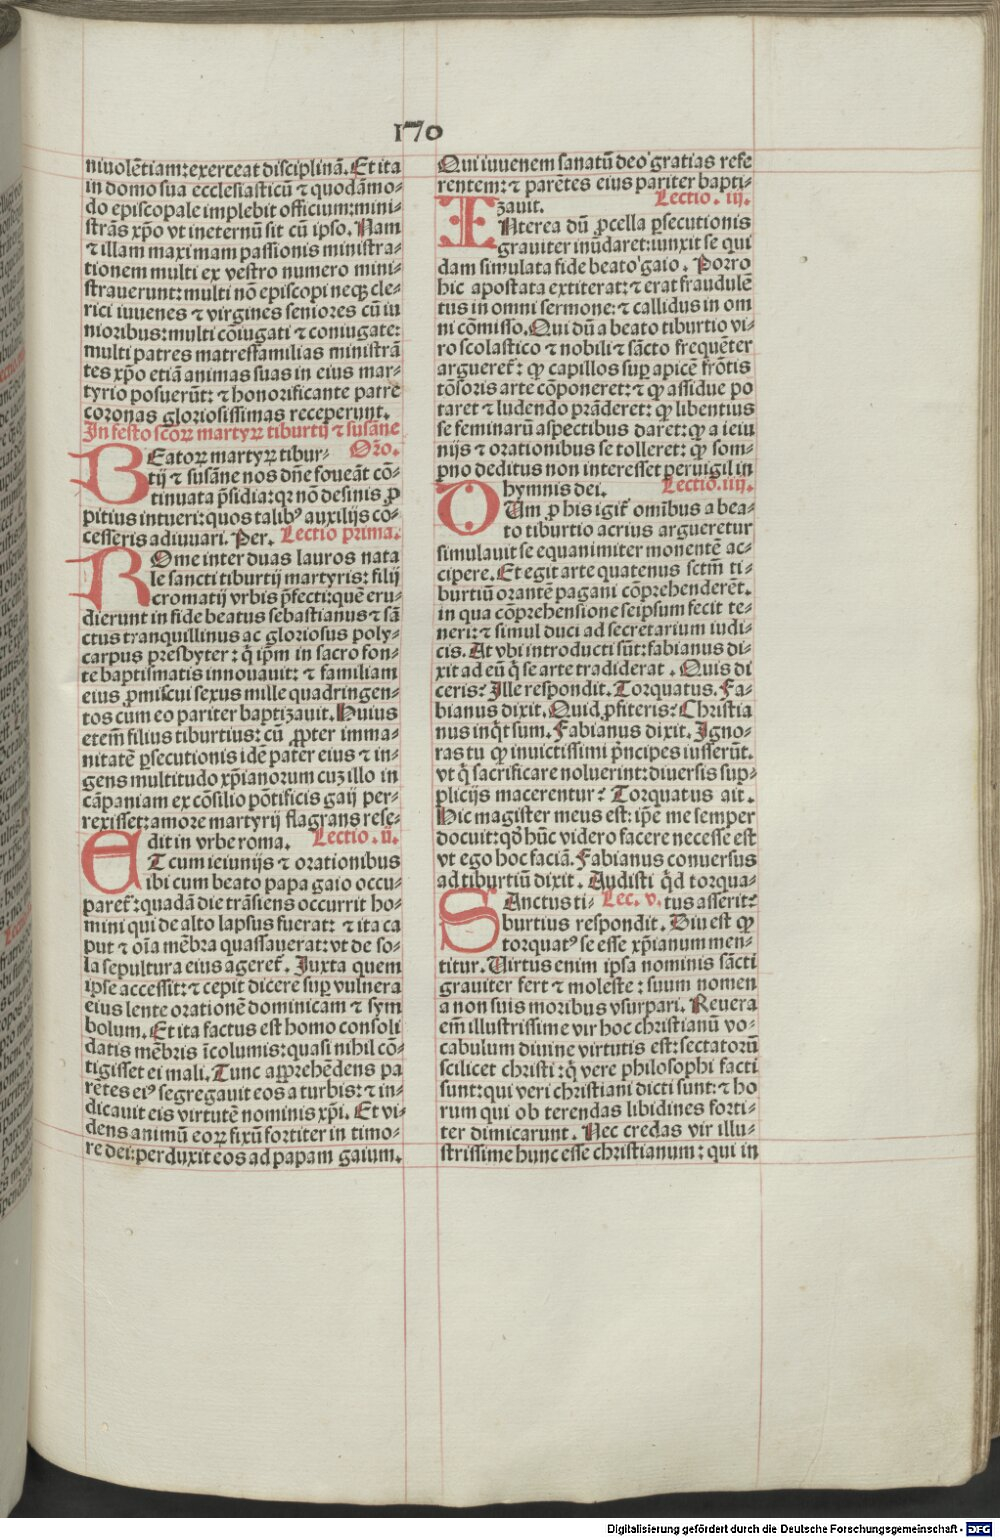 170
niuolētiam: exerceat disciplinā. Et ita
in domo sua ecclesiasticū ⁊ quodāmo-
do episcopale implebit officium: mini-
strās xp̄o vt ineternū sit cū ipso. Nam
⁊ illam maximam passionis ministra-
tionem multi ex vestro numero mini-
strauerunt: multi nō episcopi neqꝫ cle-
rici iuuenes ⁊ virgines seniores cū iu
nioribus: multi cōiugati ⁊ coniugate:
multi patres matresfamilias ministrā
tes xp̄o etiā animas suas in eius mar-
tyrio posuerūt: ⁊ honorificante patre
coronas gloriosissimas receperunt.
In festo scoꝝ martyꝝ tiburtij ⁊ susāne
BEatoꝝ martyꝝ tibur- Oro.
tij ⁊ susāne nos dn̄e foueāt cō-
tinuata p̄sidia: qꝛ nō desinis ꝓ
pitius intueri: quos talibꝰ auxilijs co-
cesseris adiuuari. Per. Lectio prima.
ROme inter duas lauros nata
le sancti tiburtij martyris: filij
cromatij vrbis p̄fecti: quē eru-
dierunt in fide beatus sebastianus ⁊ sā
ctus tranquillinus ac gloriosus poly-
carpus presbyter: q̇ ip̄m in sacro fon-
te baptismatis innouauit: ⁊ familiam
eius ꝓmiscui sexus mille quadringen-
tos cum eo pariter baptizauit. Huius
etem̄ filius tiburtius: cū ꝓpter imma-
nitatē ꝑsecutionis idē pater eius ⁊ in-
gens multitudo xp̄ianorum cuz illo in
cāpaniam ex cōsilio pōtificis gaij per-
rexisset: amore martyrij flagrans rese-
dit in vrbe roma. Lectio .ii.
ET cum ieiunijs ⁊ orationibus
ibi cum beato papa gaio occu-
paret᷑: quadā die trāsiens occurrit ho-
mini qui de alto lapsus fuerat: ⁊ ita ca
put ⁊ oīa mēbra quassauerat: vt de so-
la sepultura eius ageret᷑. Juxta quem
ipse accessit: ⁊ cepit dicere suꝑ vulnera
eius lente orationē dominicam ⁊ sym
bolum. Et ita factus est homo consoli
datis mēbris īcolumis: quasi nihil cō-
tigisset ei mali. Tunc apprehēdens pa
rētes eiꝰ segregauit eos a turbis: ⁊ in-
dicauit eis virtutē nominis xp̄i. Et vi-
dens animū eoꝝ fixū fortiter in timo-
re dei: perduxit eos ad papam gaium.
Qui iuuenem sanatū deo gratias refe
rentem: ⁊ parētes eius pariter bapti-
zauit. Lectio .iij.
INterea dū ꝓcella ꝑsecutionis
grauiter inūdaret: iunxit se qui
dam simulata fide beato gaio. Porro
hic apostata extiterat: ⁊ erat fraudulē
tus in omni sermone: ⁊ callidus in om
ni cōmisso. Qui dū a beato tiburtio vi-
ro scolastico ⁊ nobili ⁊ sācto frequēter
argueret᷑: ꝙ capillos suꝑ apicē frōtis
tōsoris arte cōponeret: ⁊ ꝙ assidue po
taret ⁊ ludendo prāderet: ꝙ libentius
se feminarū aspectibus daret: ꝙ a ieiu
nijs ⁊ orationibus se tolleret: ꝙ som-
pno deditus non interesset peruigil in
hymnis dei. Lectio .iiij.
DUm ꝓ his igit᷑ omībus a bea-
to tiburtio acrius argueretur
simulauit se equanimiter monentē ac-
cipere. Et egit arte quatenus sctm̄ ti-
burtiū orantē pagani cōprehenderēt.
in qua cōprehensione seipsum fecit te-
neri: ⁊ simul duci ad secretarium iudi-
cis. At vbi introducti sūt: fabianus di-
xit ad eū q̇ se arte tradiderat. Quis di
ceris? Ille respondit. Torquatus. Fa-
bianus dixit. Quid ꝓfiteris? Christia
nus inq̇t sum. Fabianus dixit. Igno-
ras tu ꝙ inuictissimi p̄ncipes iusserūt.
vt q̇ sacrificare noluerint: diuersis sup-
plicijs macerentur? Torquatus ait.
Hic magister meus est: ip̄e me semper
docuit: qd̄ hūc videro facere necesse est
vt ego hoc faciā. Fabianus conuersus
ad tiburtiū dixit. Audisti q̇d torqua-
SAnctus ti- Lec. v. tus asserit?
burtius respondit. Diu est ꝙ
torquatꝰ se esse xp̄ianum men-
titur. Uirtus enim ipsa nominis sācti
grauiter fert ⁊ moleste: suum nomen
a non suis moribus vsurpari. Reuera
em̄ illustrissime vir hoc christianū vo-
cabulum diuine virtutis est: sectatorū
scilicet christi: q̇ vere philosophi facti
sunt: qui veri christiani dicti sunt: ⁊ ho
rum qui ob terendas libidines forti-
ter dimicarunt. Nec credas vir illu-
strissime hunc esse christianum: qui in
Digitalisierung gefördert durch die Deutsche Forschungsgemeinschaft - DFG